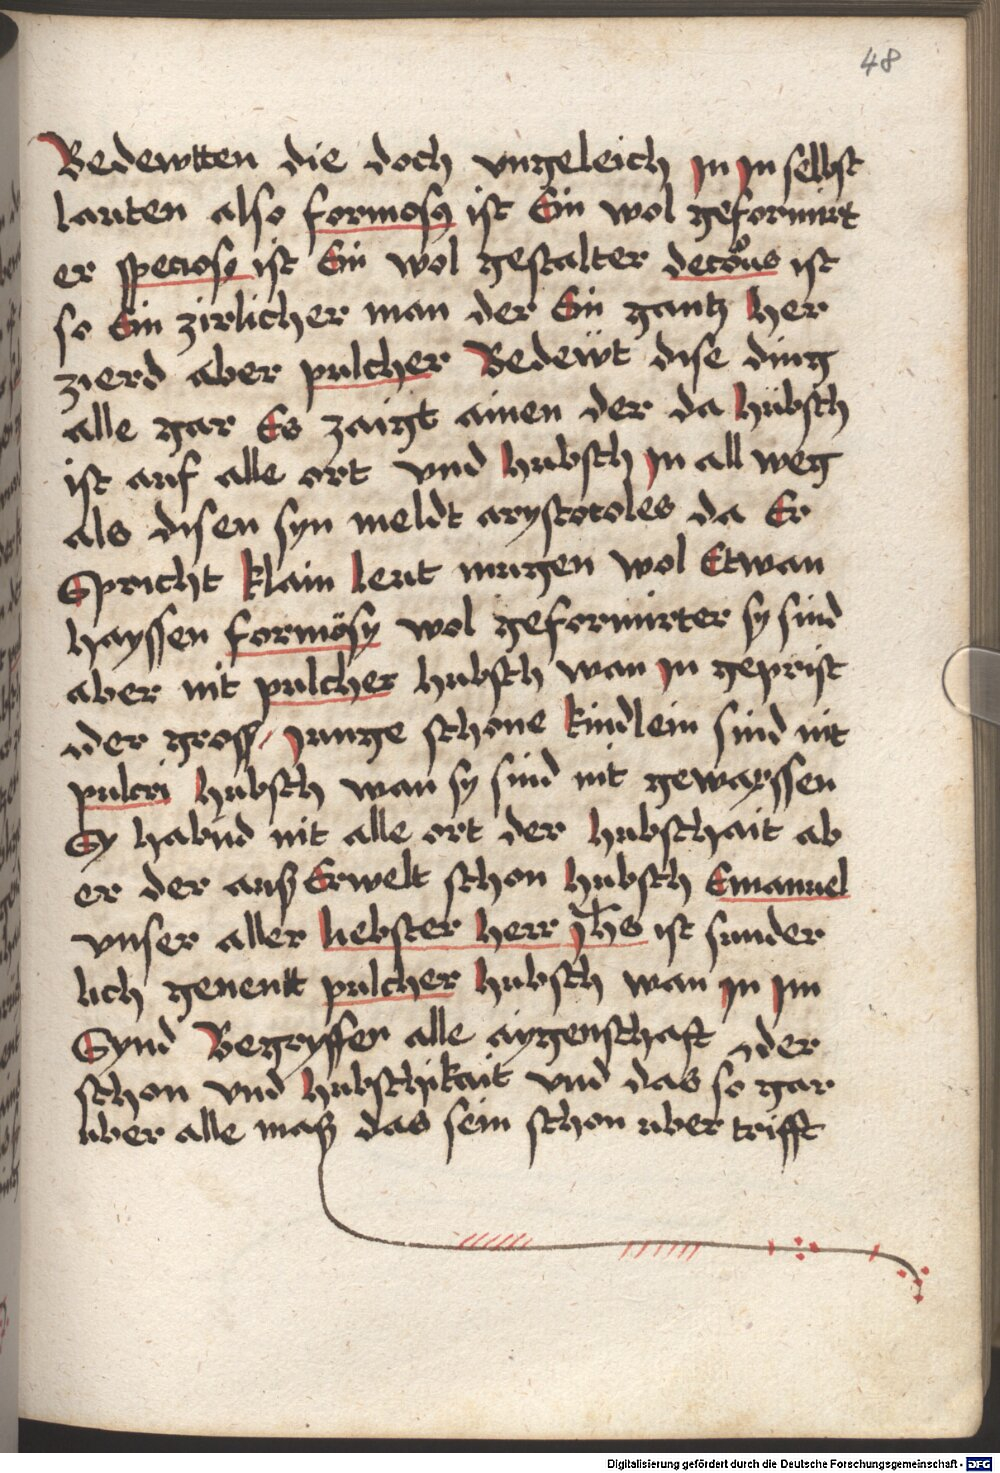 48
Bedewtten die doch vngeleich jn jn selbst
lauten also formosus ist Ein wol geformirt
er speciosus ist Ein wol gestalter decorus ist
so Ein zirlicher man der Ein gantz her
zierd aber pulcher Bedewt dise ding
alle gar Es zaigt ainen der da hübsch
ist auf alle ort vnd hubsch jn all weg
als disen syn meldt arystotoles da Er
Spricht klain leut mugen wol Etwan
hayssen formösy wol geformirter sy sind
aber nit pulcher hubsch wan jn geprist
der gross / junge schone kindlein sind nit
pulcri hubsch wan sy sind nit gewayssen
Sy habnd nit alle ort der hubschait ab
er der auß Erwelt schon hubsch Emanuel
vnser aller liebster herr jhs ist sunder
lich genentt pulcher hubsch wan jn jm
Synd Begryffen alle aygenschaft der
schon vnd hubschikait vnd das so gar
uber alle maß das sein schon uber trifft
Digitalisierung gefördert durch die Deutsche Forschungsgemeinschaft - DFG